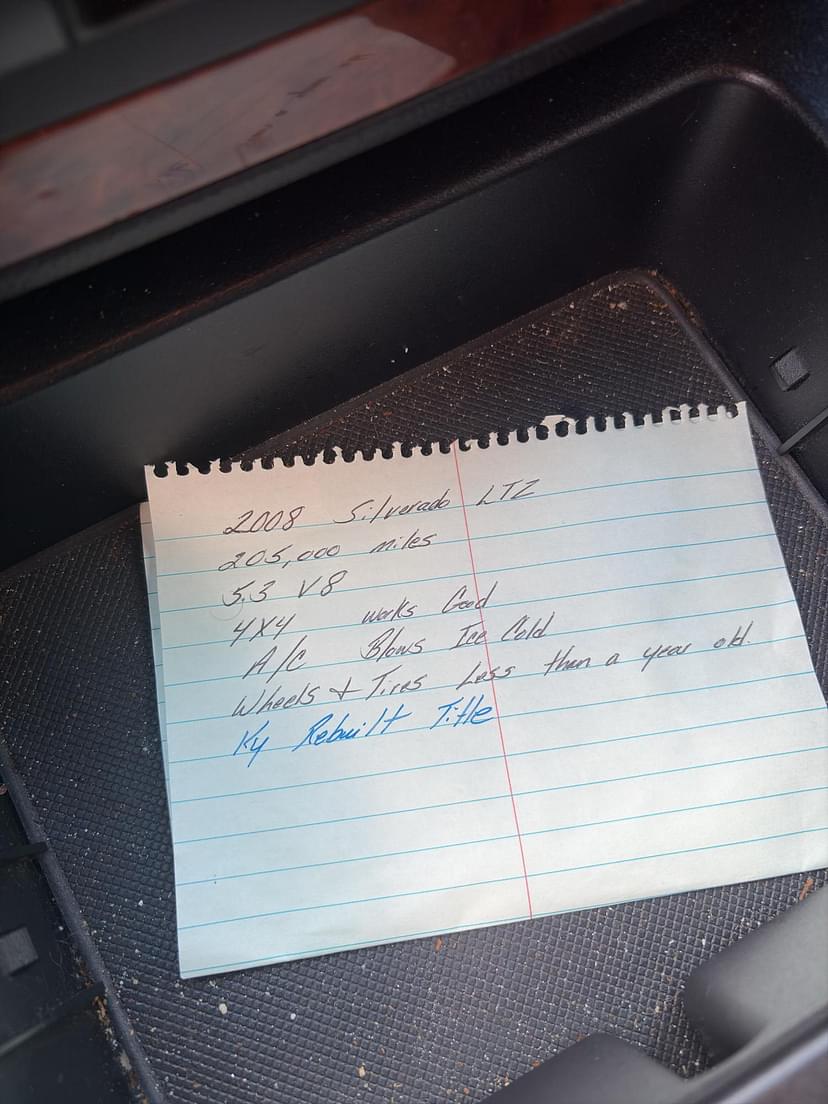 2008 Silverado LTZ
205,000 miles
5.3 V8
4x4 works Good
A/C Blows Ice Cold
Wheels & Tires Less than a year old.
Ky Rebuilt Title